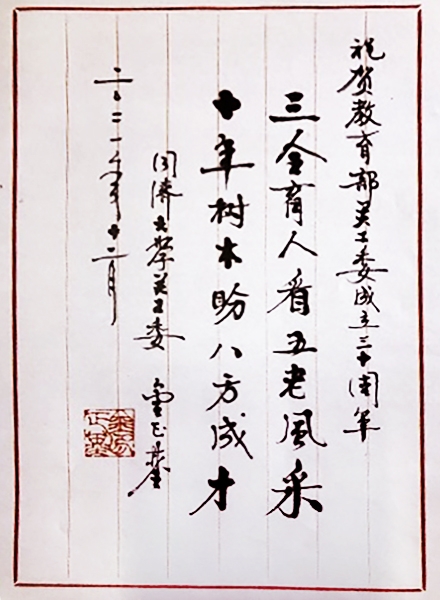 祝贺教育部关工委成立三十周年
三全育人看五老風采
十年树木盼八方成才
同济大学关工委 金正基
二〇二一年十二月